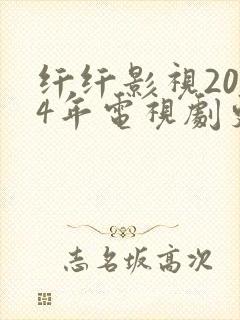 纤纤影視20
4年電視劇
志名坂高次